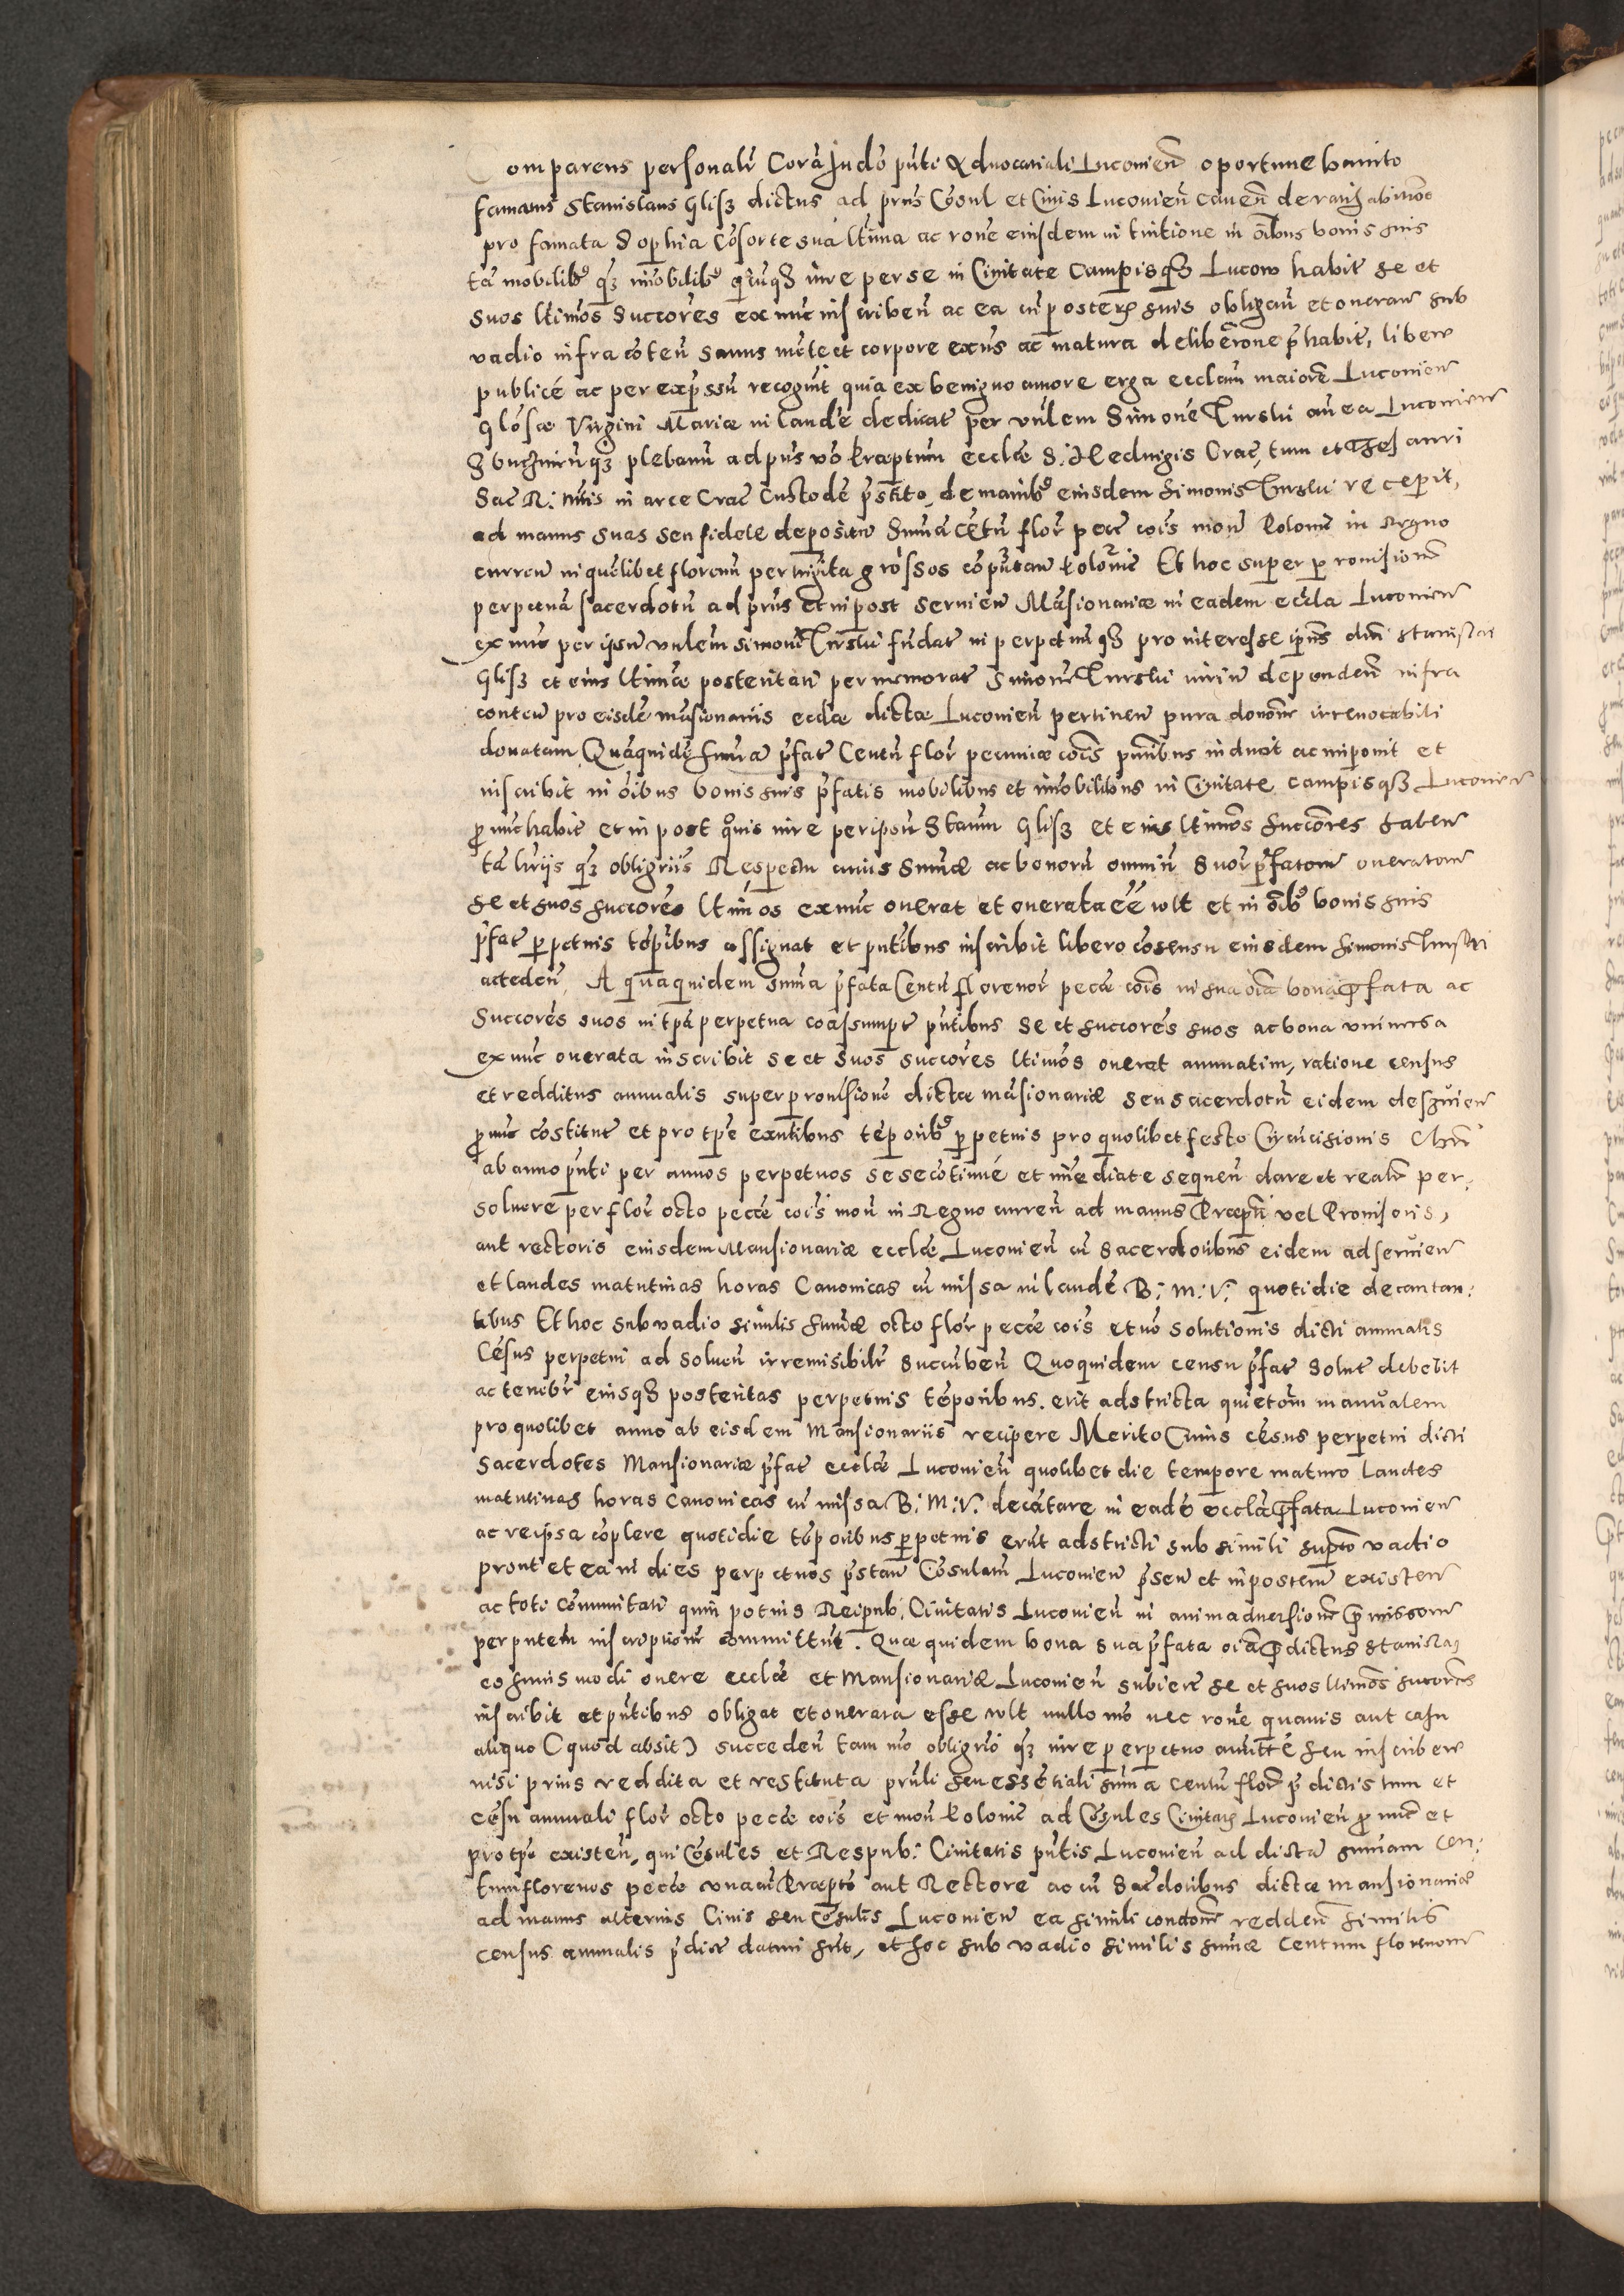 Comparens personalr Corã Judõ pñti Advocatiali Luconień oportune banito
famatus Stanislaus Glisz dictus ad prñs Cõsul et Civis Luconień caveñ de ratihabitiõe
pro famata Sophia Cõsorte sua ltima ac rone eiusdem in tuitione in oibus bonis suis
tã mobilibs qz imobilibs qcuqz iure per se in Civitate Campisqz Lucow habit se et
suos ltimos Succores ex nunc inscribeń ac ea cu posteris suis obligań et onerań sub
vadio infra coteń sanus mete et corpore exñs ac matura deliberone prhabit, libere
publicé ac per expssũ recogñt quia ex benigno amore erga ecclam maiorẽ Luconień
Glosae Virgini Mariae in laudẽ dedicat per vñlem Simonẽ Turski
plebanũ ad pñs vo Praeptum eccłae S. Hedvigis Crać, tum et Thesauri
Sać R. Mtis in arce Crać Custodẽ pstito, de manibs eiusdem Simonis Turski recepit,
ad manus suas seu fidele depositũ Suma cẽtũ flor peć cois moñ Poloniē in Regno
curreń in quelibet florenũ per triginta grossos coputań Poloniē Et hoc super provisionē
perpetuã sacerdotũ ad prñs et in post servień Mãsionariae in eadem eccla Luconień
ex nunc per ipsũ vñlem Simonē Turski fundat in perpetuũqz pro interesse ipsius dni Stanislai
Glisz et eius ltimae posteritati per memorat Simonē Turski dependeń infra
conteń pro eisdẽ mãsionariis eccłae dictae Luconień pertineń pura donõne irrevocabili
donatam Quãquidẽ Sumã pfat Centũ flor pecuniae cois pñtibus inducit ac imponit et
inscribit in oibus bonis suis pfatis mobilibus et imobilibus in Civitate Campisqz Luconień
p nunc habit et in post qovis iure per ipsũ Staum Glisz et eius ltimos Succores habeń
tã qz Respectu cuius Sumae ac bonorũ omniũ suor pfator onerator
se et suos succores ltimos ex nunc onerat et onerata eẽ vlt et in oibs bonis suis
pfat ppetuis tẽpibus assignat et pñtibus inscribit libero cõsensu eiusdem Simonis Turski
accedeń. A quaquidem Suma pfata Centũ Florenor pećae cois in sua oia bona pfata ac
Succores suos in tpa perpetua coassumpt pñtibus se et succores suos ac bona universa
ex nunc onerata inscribit se et suos succores ltimos onerat annuatim, ratione census
et redditus annualis super provisionē dictae mãsionariae seu sacerdotũ eidem deservień
p nunc cõstitut et pro tpe exñtibus tẽporibs ppetuis pro quolibet festo Circũcisionis Chri
ab anno pñti per annos perpetuos sese cotinué et imediate sequeń dare et realr per-
solvere per flor octo pećae cois moñ in Regno curreń ad manus Praepti vel Provisoris,
aut rectoris eiusdem Mansionariae eccłae Luconień cũ sacerdotibus eidem adservień
et laudes matutinas horas Canonicas cũ missa in laudẽ B. M. V. quotidie decantan-
tibus Et hoc sub vadio similis Sumae octo flor pećae cois et vo solutionis dicti annualis
Cẽsus perpetui ad solveń irremisibilr succũbeń Quoquidem censu pfat solut debebit
ac tenebr eiusqz posteritas perpetuis tẽporibus. erit adstricta quietõm manualem
pro quolibet anno ab eisdem Mansionariis recipere Merito Cuius cẽsus perpetui dicti
Sacerdotes Mansionariae pfat eccłae Luconień quolibet die tempore maturo Laudes
matutinas horas canonicas cũ missa B. M. V. decãtare in eadẽ eccla pfata Luconień
ac reipsa coplere quotidie tẽporibus perpetuis erũt adstricti sub simili supto vadio
prout et ea in dies perpetuos pstań Cõsulari Luconień pseń et in posterũ existeń
ac toti Communitati quin potius Reipub. Civitatis Luconień in animadversionē pmissor
per pñtem inscriptionē committũt. Quae quidem bona sua pfata oia pdictus Stanislaus
eo huiusmodi onere eccłae et Mansionariae Luconień subiecit se et suos ltimos succores
inscribit et pñtibus obligat et onerata esse vlt nullo mõ nec rone quavis aut casu
aliquo (quod absit) succedeń tam mõ obligrio qz iure perpetuo amittẽ seu inscribere
nisi prius reddita et restituta prnli seu essẽtiali sũma centũ flor pdictis tum et
cẽsu annuali flor octo pećae cois et moñ Poloniē ad Cõsules Civitatis Luconień p nunc et
pro tpe existeń, qui Cõsules et Respub. Civitatis pñtis Luconień ad dictã sumam Cen-
tum florenos pećae una cũ Praepto aut Rectore ac cũ Sacdotibus dictae mansionariae
ad manus alterius Civis seu Cõsulis Luconień ea simili conditõne reddeń similis
census annualis pdict daturi sũt, et hoc sub vadio similis sumae Centum florenor